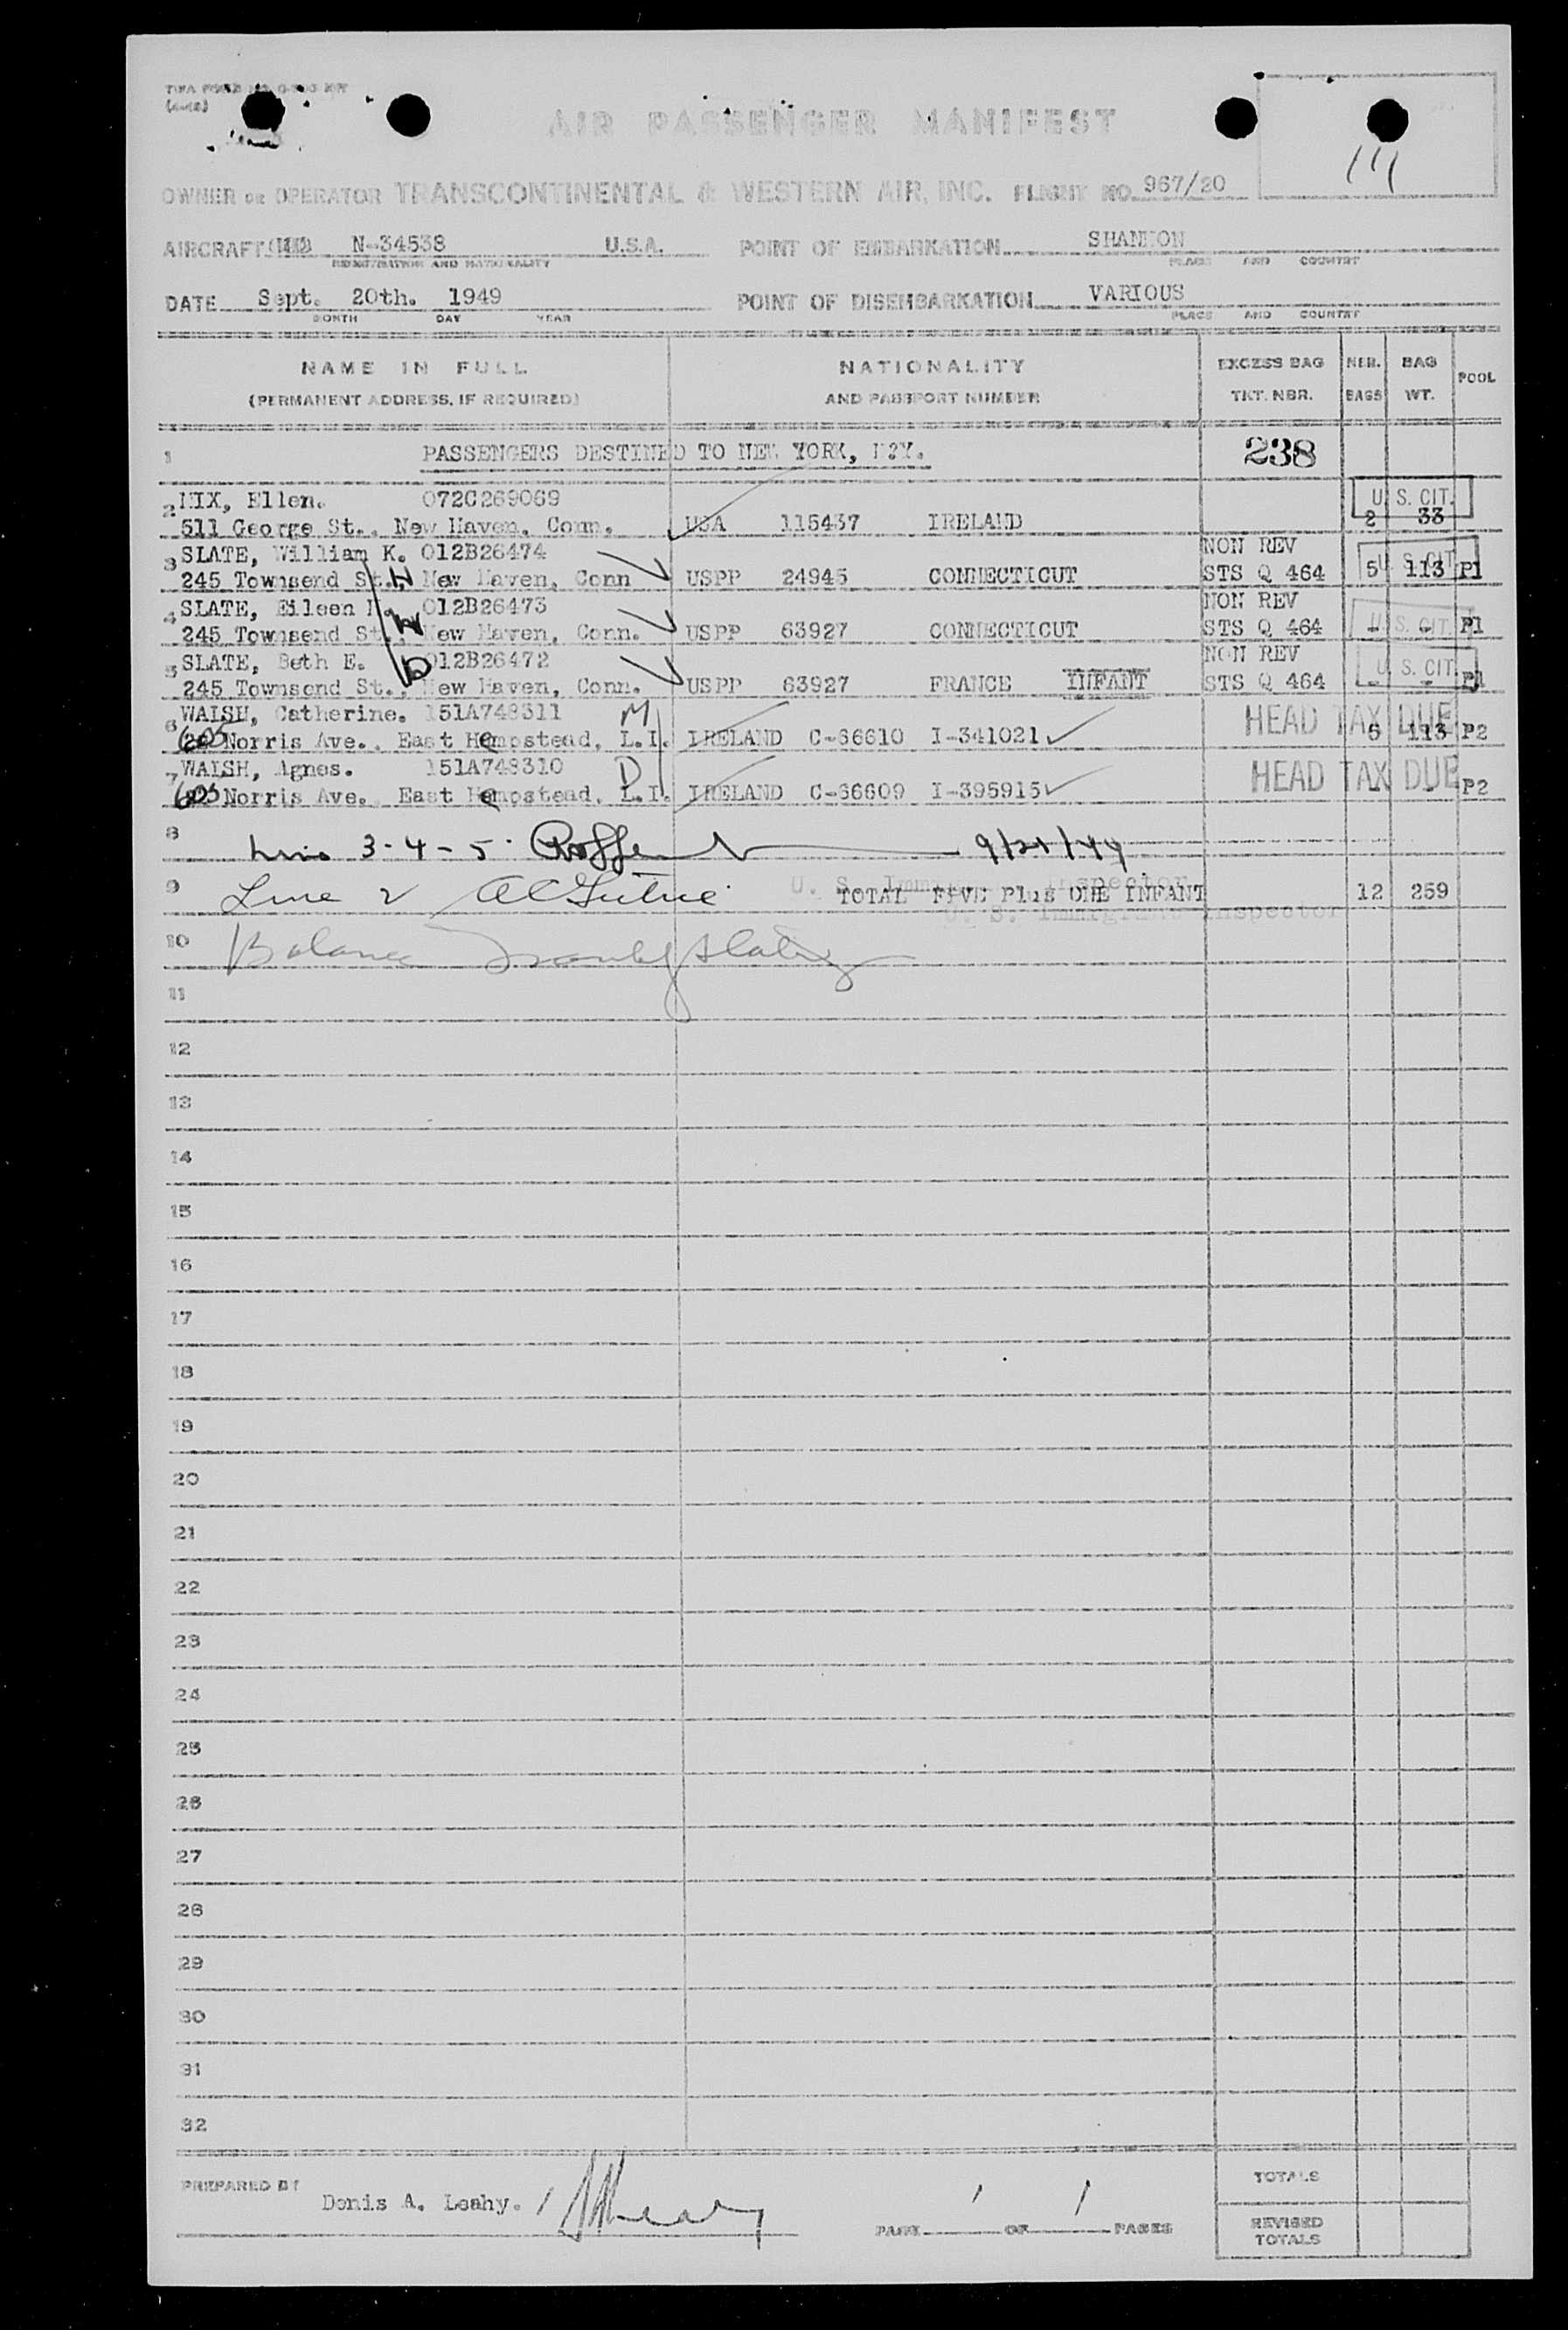 AIR PASSENGER MANIFEST
111
OWNER OR OPERATOR TRANSCONTINENTAL & WESTERN AIR, INC. FLIGHT NO. 967/20
AIRCRAFT N-34538 U.S.A. POINT OF EMBARKATION SHANNON
REGISTRATION AND NATIONALITY PLACE AND COUNTRY
DATE Sept. 20th. 1949 POINT OF DISEMBARKATION VARIOUS
MONTH DAY YEAR PLACE AND COUNTRY
NAME IN FULL NATIONALITY EXCESS BAG NBR. BAG POOL
(PERMANENT ADDRESS, IF REQUIRED) AND PASSPORT NUMBER TKT. NBR. BAGS WT.
1 PASSENGERS DESTINED TO NEW YORK, N?Y. 238
2 Ellen. 072C269069 U.S. CIT.
511 George St., New Haven, Conn. USA 115437 IRELAND 2 33
3 SLATE, William K. 012B26474 NON REV U.S. CIT.
245 Townsend St., New Haven, Conn USPP 24945 CONNECTICUT STS Q 464 5 113 P1
4 SLATE, Eileen 012B26473 NON REV
245 Townsend St., New Haven, Conn. USPP 63927 CONNECTICUT STS Q 464 - U.S. CIT. - P1
5 SLATE, Beth E. 012B26472 NON REV U.S. CIT.
245 Townsend St., New Haven, Conn. USPP 63927 FRANCE INFANT STS Q 464 - - P1
6 WALSH, Catherine. 151A748311 M HEAD TAX DUE
605 Norris Ave., East Hempstead, L.I. IRELAND C-66610 I-341021 5 113 P2
7 WALSH, Agnes. 151A748310 D HEAD TAX DUE
605 Norris Ave. East Hempstead, L.I. IRELAND C-66609 I-395915 - P2
8 3-4-5
9 Line 2 U. S. Immigrant Inspector TOTAL FIVE Plus ONE INFANT 12 259
U. S. Immigrant Inspector
10 Balance
11
12
13
14
15
16
17
18
19
20
21
22
23
24
25
26
27
28
29
30
31
32
PREPARED BY Denis A. Leahy. TOTALS
PAGE 1 OF 1 PAGES REVISED TOTALS